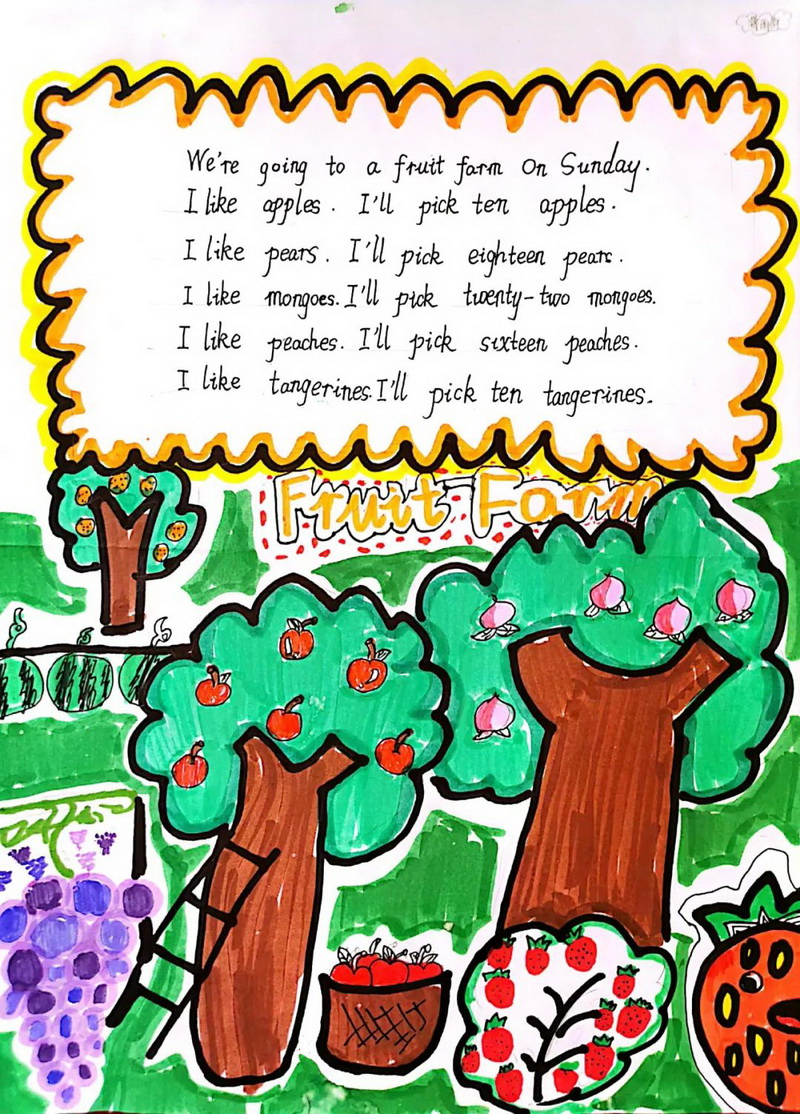 We're going to a fruit farm on Sunday.
I like apples. I'll pick ten apples.
I like pears. I'll pick eighteen pears.
I like mongoes. I'll pick twenty-two mongoes.
I like peaches. I'll pick sixteen peaches.
I like tangerines. I'll pick ten tangerines.
Fruit Farm